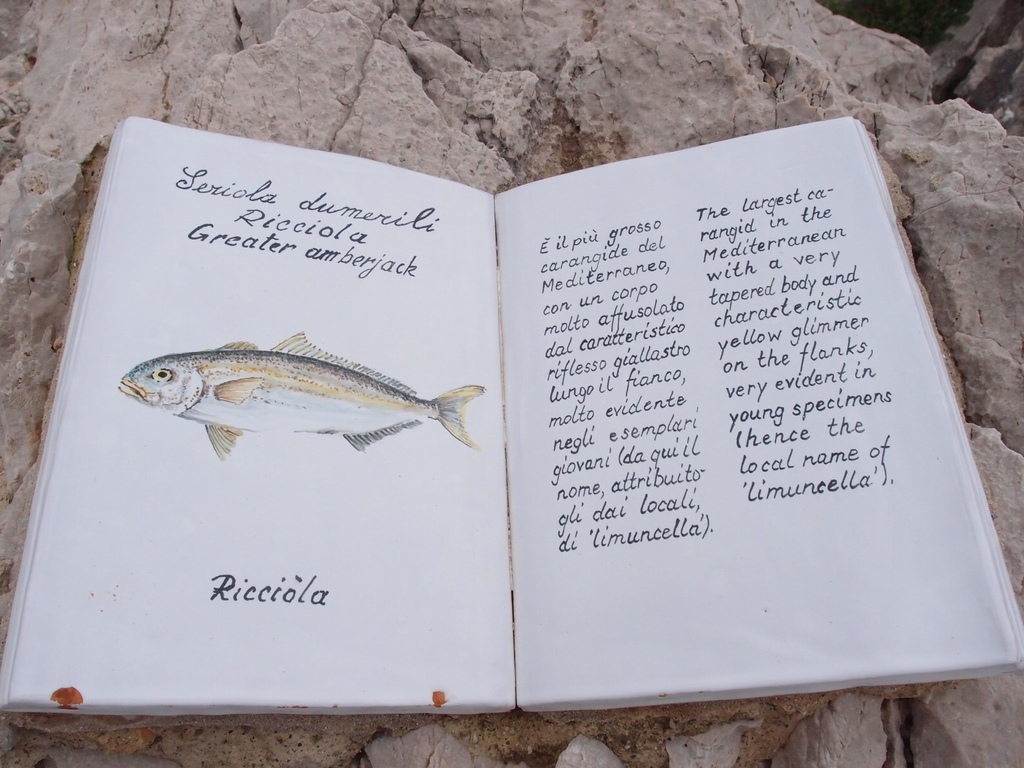 Seriola dumerili
Ricciola
Greater amberjack
Ricciòla
È il più grosso
carangide del
Mediterraneo,
con un corpo
molto affusolato
dal caratteristico
riflesso giallastro
lungo il fianco,
molto evidente
negli esemplari
giovani (da qui il
nome, attribuito-
gli dai locali,
di 'limuncella').
The largest ca-
rangid in the
Mediterranean
with a very
tapered body and
characteristic
yellow glimmer
on the flanks,
very evident in
young specimens
(hence the
local name of
'limuncella').